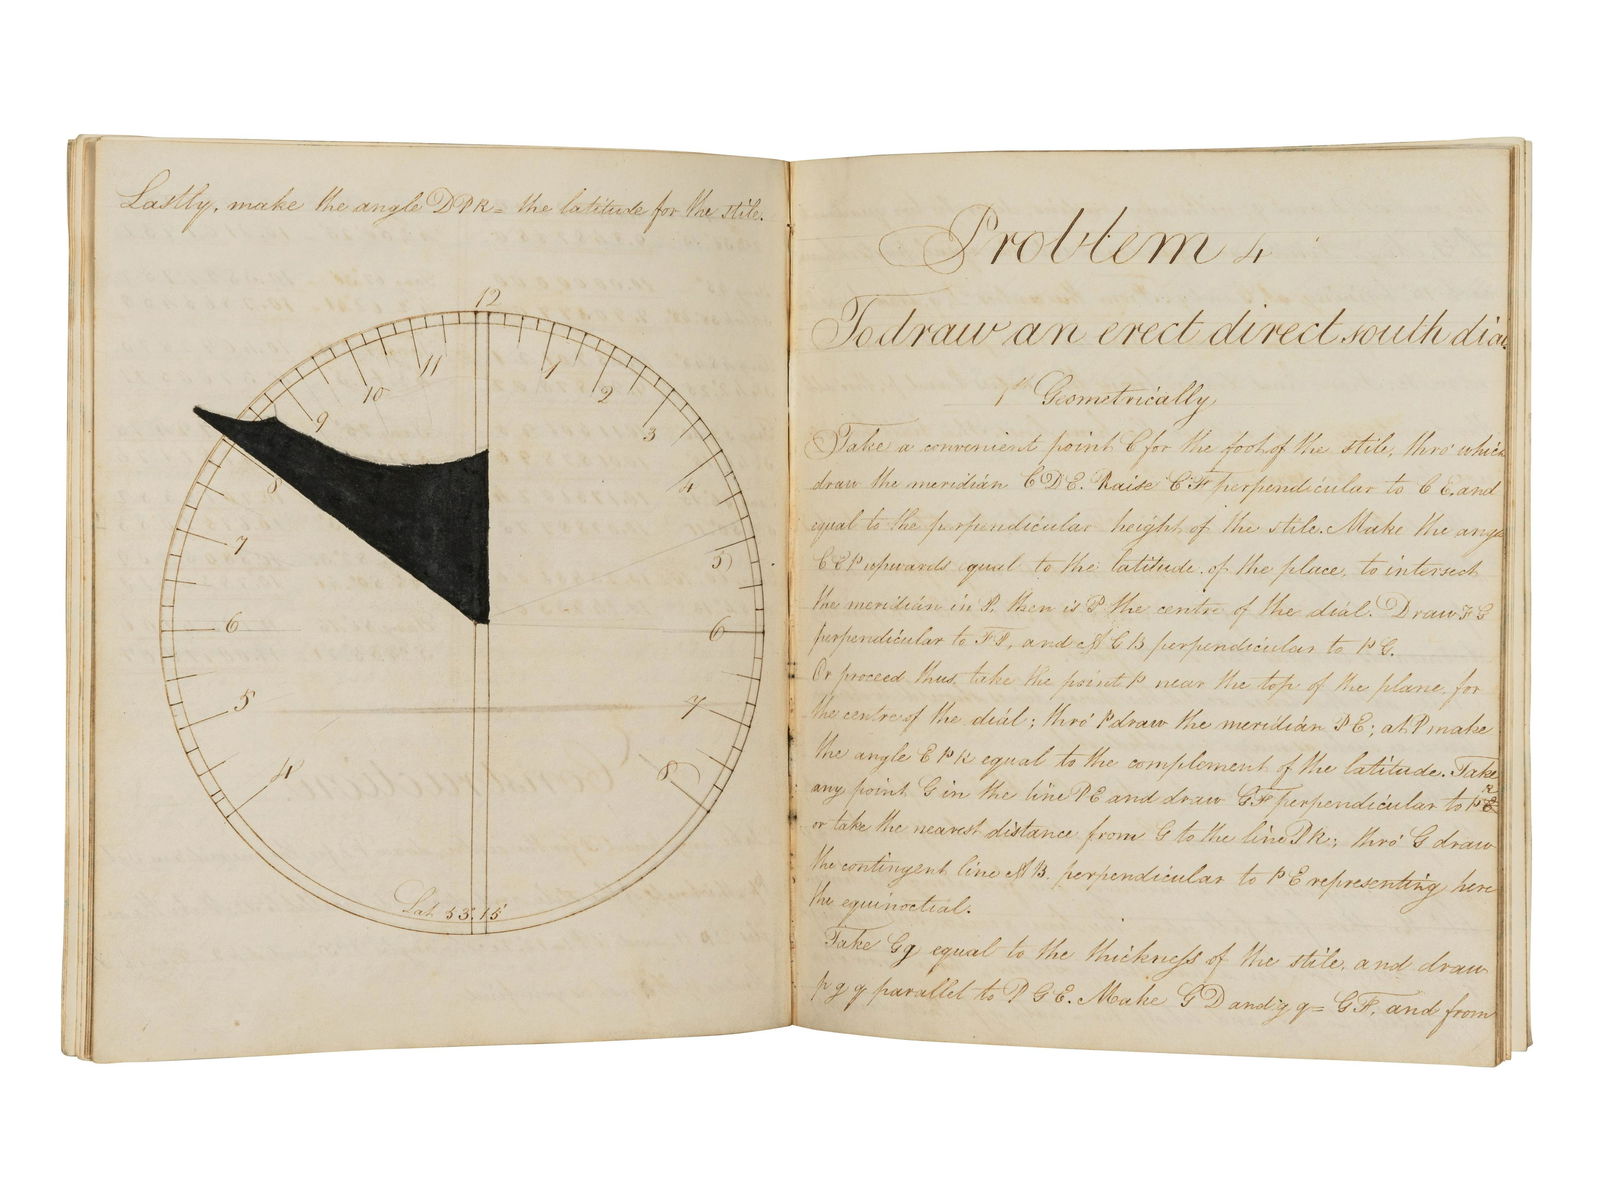 Lastly, make the angle DPR = the latitude for the stile.
12
11
1
10
2
9
3
8
4
7
5
6
6
5
7
4
8
Lat 53.15
Problem 4
To draw an erect direct south dial
1st Geometrically
Take a convenient point C for the foot of the stile, thro' which
draw the meridian C D E. Raise C F perpendicular to C E, and
equal to the perpendicular height of the stile. Make the angle
C E P upwards equal to the latitude of the place, to intersect
the meridian in P, then is P the centre of the dial. Draw F G
perpendicular to F P, and A G B perpendicular to P G.
Or proceed thus, take the point P near the top of the plane, for
the centre of the dial; thro' P draw the meridian P E; at P make
the angle E P R equal to the complement of the latitude. Take
any point G in the line P E and draw G F perpendicular to P R
or take the nearest distance from G to the line P R; thro' G draw
the contingent line A B. perpendicular to P E representing here
the equinoctial.
Take Gg equal to the thickness of the stile, and draw
p g parallel to P G E. Make G D and = G F, and from